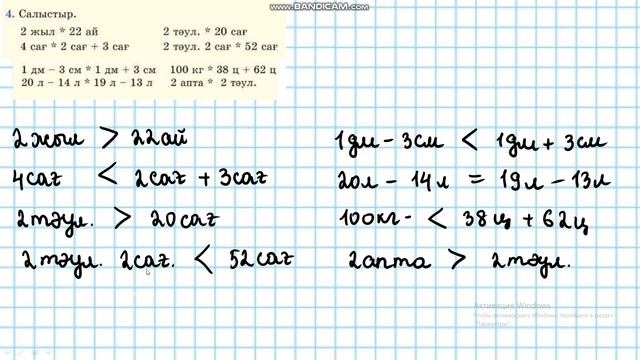 www.BANDICAM.com
4. Салыстыр.
2 жыл * 22 ай
4 сағ * 2 сағ + 3 сағ
2 тәул. * 20 сағ
2 тәул. 2 сағ * 52 сағ
1 дм − 3 см * 1 дм + 3 см
20 л − 14 л * 19 л − 13 л
100 кг * 38 ц + 62 ц
2 апта * 2 тәул.
2 жыл > 22 ай
4 сағ < 2 сағ + 3 сағ
2 тәул. > 20 сағ
2 тәул. 2 сағ. < 52 сағ
1 дм − 3 см < 1 дм + 3 см
20 л − 14 л = 19 л − 13 л
100 кг < 38 ц + 62 ц
2 апта > 2 тәул.
Активация Windows
Чтобы активировать Windows, перейдите в раздел
"Параметры".